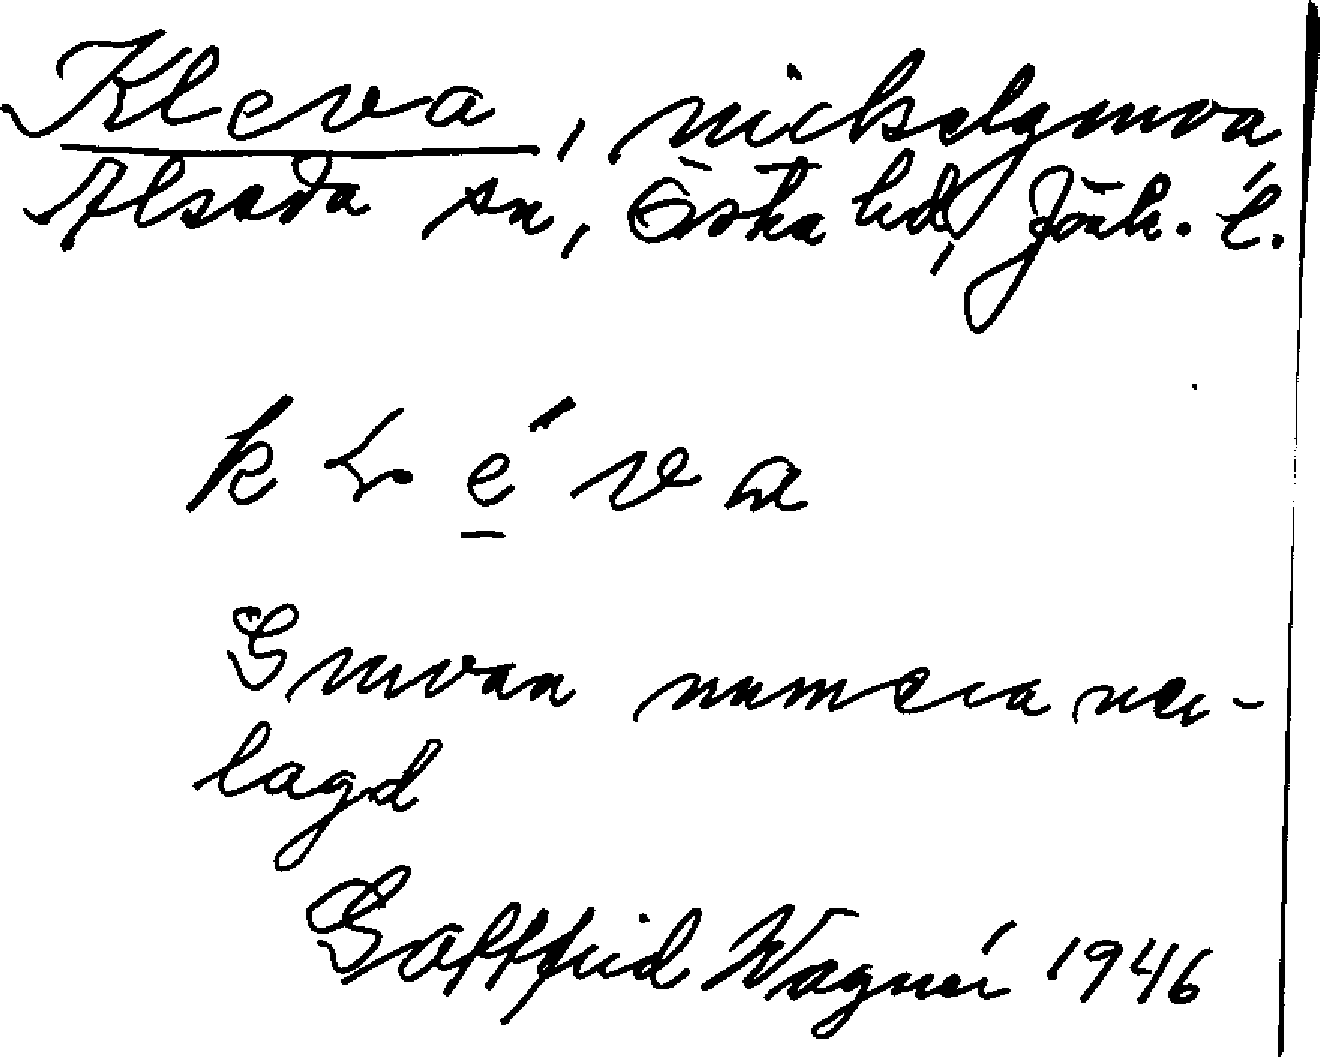 Kleva, nickelgruva
Alseda sn, Östra hd, Jönk. l.
k L é v a
Gruvan numera ned-
lagd
Gottfrid Wagnér 1946